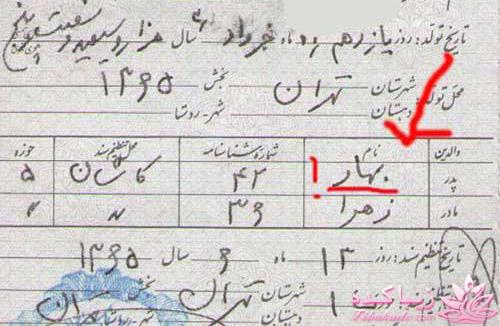 تاریخ تولد: روز یازدهم ماه خرداد سال هزار و سیصد و شصت و پنج
۱۳۶۵
محل تولد: شهرستان تهران بخش
دهستان شهر - روستا
والدین نام شماره شناسنامه محل تنظیم سند حوزه
پدر بهار ! ۴۲ کاشان ۵
مادر زهرا ۳۶ 〃 〃
تاریخ تنظیم سند: روز ۱۳ ماه ۶ سال ۱۳۶۵
شهرستان تهران بخش تهران
شهر - روستا